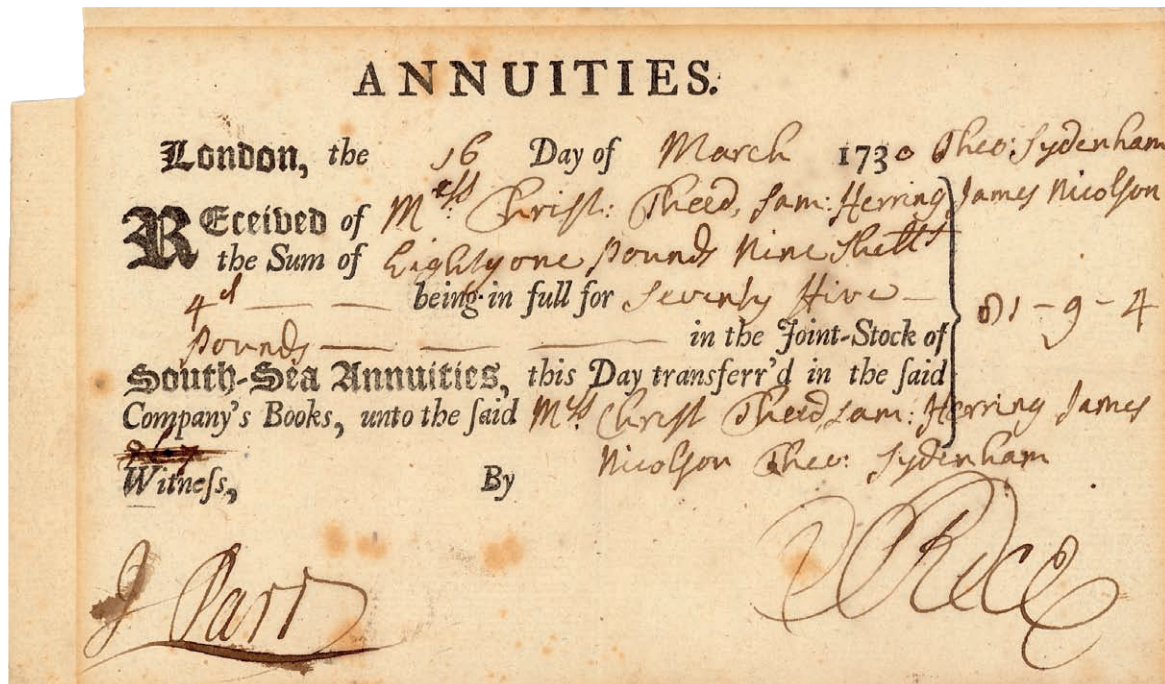 ANNUITIES.
London, the 16 Day of March 1730 Theo: Sydenham
REceived of Mess.rs Christ: Theed, Sam: Herring James Nicolson
the Sum of Eighty one Pounds Nine Shells
4d — — being in full for Seventy Five — 81-9-4
Pounds — — — in the Joint-Stock of
South-Sea Annuities, this Day transferr'd in the ſaid
Company's Books, unto the ſaid Mess. Christ Theed, Sam: Herring James
Nicolson Theo: Sydenham
Witneſs, By
J Parr